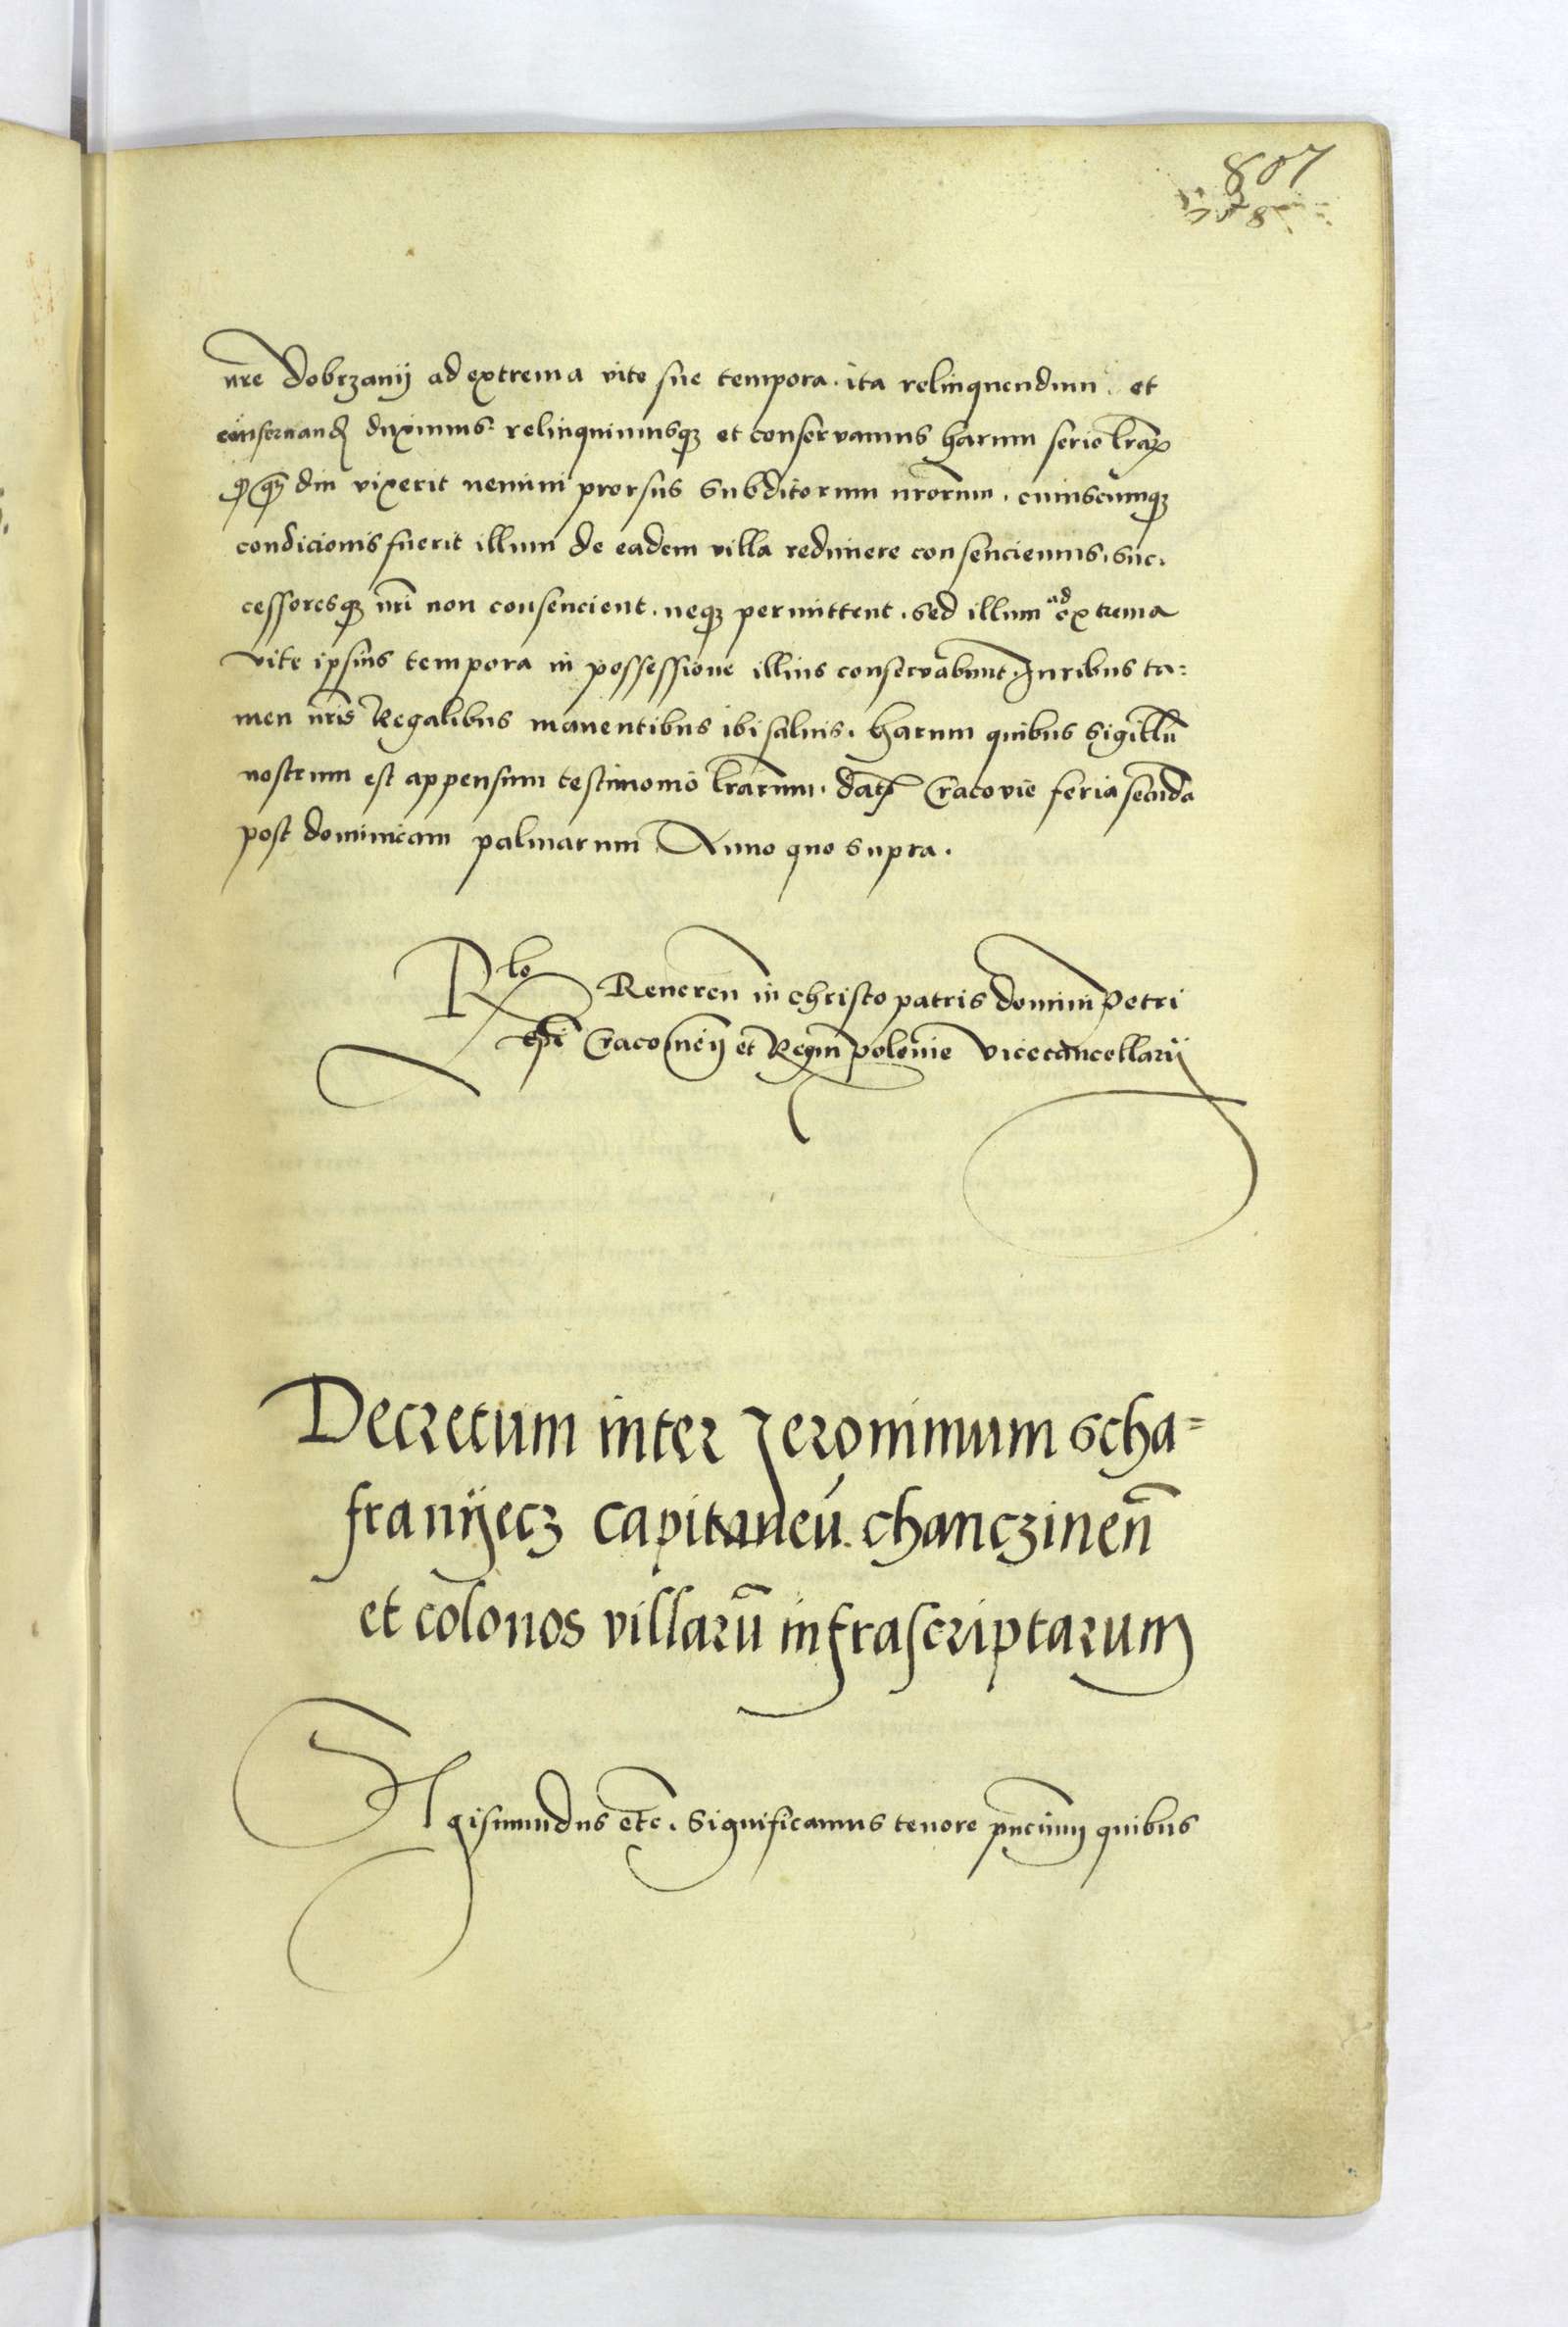 807
nr̃e dobrzanij ad extrema vite sue tempora. ita relinquendum. et
conseruand̃ duximus. relinquimusqꝫ et conservamus harum serie lr̃aꝝ
qꝫ diu vixerit nemini prorsus subditorum nr̃orum. cuiuscumqꝫ
condicionis fuerit illum de eadem villa redimere consenciemus. suc.
cessoresqꝫ nr̃i non consencient. neqꝫ permittent. sed illum ad extrema
vite ipsius tempora in possessione illius conservabunt. Juribus ta:
men nr̃is Regalibus manentibus ibi saluis. harum quibus Sigillũ
nostrum est appensum testimonio lr̃arum. dat̃ Cracovie feria secũda
post dominicam palmarum Anno quo supra.
Rlo Reueren̄ in christo patris domini Petri
ep̃i Cracouien̄ et Regni polonie vicecancellarij
Decretum inter Jeronimum scha=
franÿecz capitaneũ. chanczinen̄
et colonos villarũ infrascriptarum
Sigismundus etc̃. Significamus tenore pn̄cium quibus